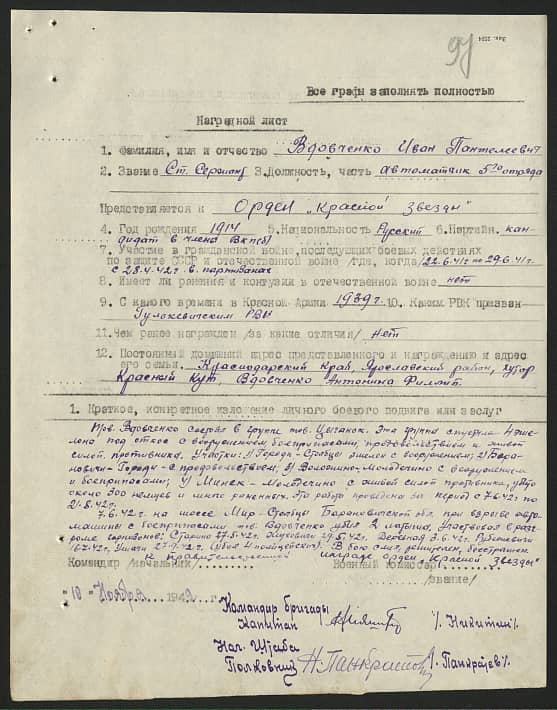 97
Зак. 1524
Все графы заполнять полностью
Наградной лист
1. Фамилия, имя и отчество Вдовченко Иван Пантелеевич
2. Звание Ст. Сержант 3. Должность, часть автоматчик 5го отряда
Представляется к Орден "Красной Звезды"
4. Год рождения 1914 5. Национальность Русский 6. Партийн. кан-
дидат в члена ВКП(б)
7. Участие в гражданской войне, последующих боевых действиях
по защите СССР и отечественной войне /где, когда/ 22.6.41г по 29.6.41г
с 28.4.42г. в партизанах
8. Имеет ли ранения и контузии в отечественной войне нет
9. С какого времени в Красной Армии 1939г. 10. Каким РВК призван
РВК
11. Чем ранее награжден /за какие отличия/ Нет
12. Постоянный домашний адрес представленного к награждению и адрес
его семьи. Краснодарский край, Ярославский район, хутор
Красный Кут, Вдовченко Антонина Филлип.
1. Краткое, конкретное изложение личного боевого подвига или заслуг
тов. Вдовченко состоя в группе тов. Цыганок. Эта группа спустила 4 эше-
лона под откос с вооружением боеприпасами, продовольствием и живой
силой противника. Участки: 1) Городи-Столбцы эшелон с вооружением; 2) Бара-
новичи-Городи с продовольствием; 3) Воложино-Молодечно с вооружением
и боеприпасами; 4) Минск-Молодечно с живой силой противника, убито
около 300 немцев и много раненных. Эта работа проведена в период с 7.6.42г по
21.8.42г.
7.6.42г. на шоссе Мир-Столбцы Барановичской обл. при взрыве авто-
машины с боеприпасами тов. Вдовченко убил 2 Участвовал в раз-
громе гарнизонов: 27.5.42г. 29.5.42г. 3.6.42г.
27.9.42г. (убил 4 полицейских). В бою смел, решителен, бесстрашен.
К правительственной награде орден "Красной Звезды"
Командир /начальник/ Военный комиссар
/звание/
"10" Ноября 1942 г.
Командир бригады
Капитан /Никитин/
Нач. Штаба
Полковник Н. Панкратов